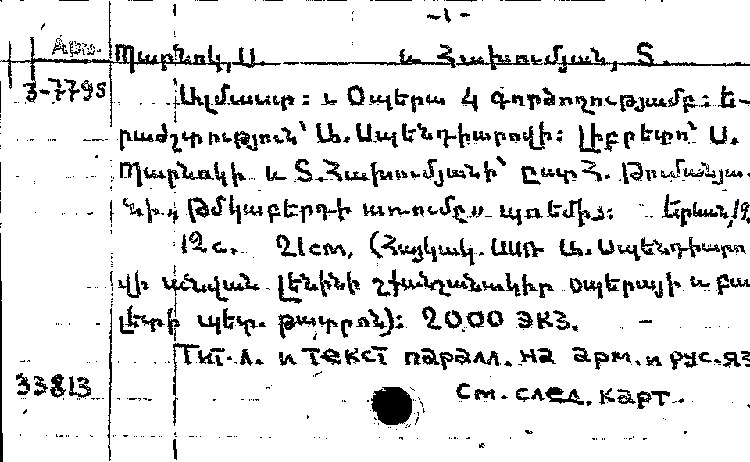 -1-
Арм. Պառնոկ, Ս. և Հախումյան, Տ.
3-7795 Ալմաստ: և Օպերա 4 գործողությամբ: Ե-
րաժշտություն՝ Ա. Սպենդիարովի: Լիբրետո՝ Ս.
Պառնոկի և Տ. Հախումյանի՝ ըստ Հ. Թումանյա-
նի «Թմկաբերդի առումը» պոեմից: Երևան, 19
12 с. 21 cm, (Հայկակ. ՍՍՌ Ա. Սպենդիարո
վի անվան Լենինի շքանշանակիր օպերայի և բա
լետի պետ. թատրոն): 2000 экз. –
Тит. л. и текст паралл. на арм. и рус. яз
33813 См. след. карт.